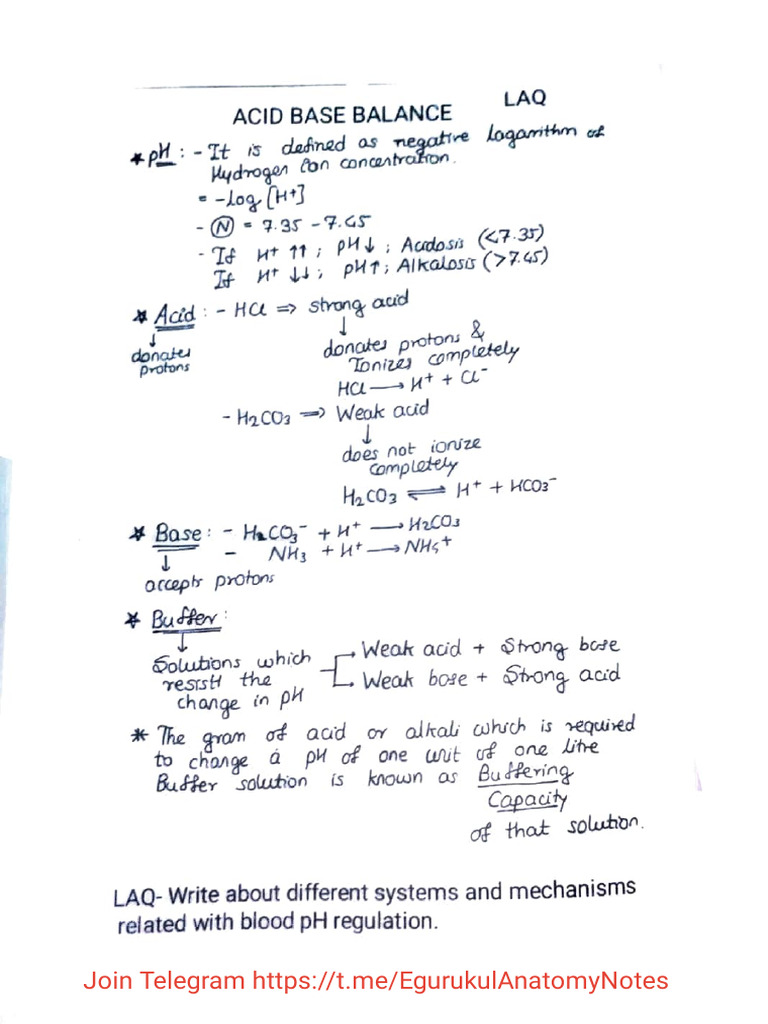 LAQ
ACID BASE BALANCE
* pH : - It is defined as negative logarithm of
Hydrogen Ion concentration.
= -Log [H+]
- (N) = 7.35 - 7.45
- If H+ ↑↑ ; pH↓ ; Acidosis (<7.35)
If H+ ↓↓ ; pH↑ ; Alkalosis (>7.45)
* Acid : - HCl => strong acid
↓
donates
protons
↓
donates protons &
Ionizes completely
HCl → H+ + Cl-
- H2CO3 => Weak acid
↓
does not ionize
completely
H2CO3 ⇌ H+ + HCO3-
* Base : - H2CO3- + H+ → H2CO3
- NH3 + H+ → NH4+
↓
accepts protons
* Buffer :
↓
Solutions which
resist the
change in pH
Weak acid + Strong base
Weak base + Strong acid
* The gram of acid or alkali which is required
to change a pH of one unit of one litre
Buffer solution is known as Buffering
Capacity
of that solution.
LAQ- Write about different systems and mechanisms
related with blood pH regulation.
Join Telegram https://t.me/EgurukulAnatomyNotes